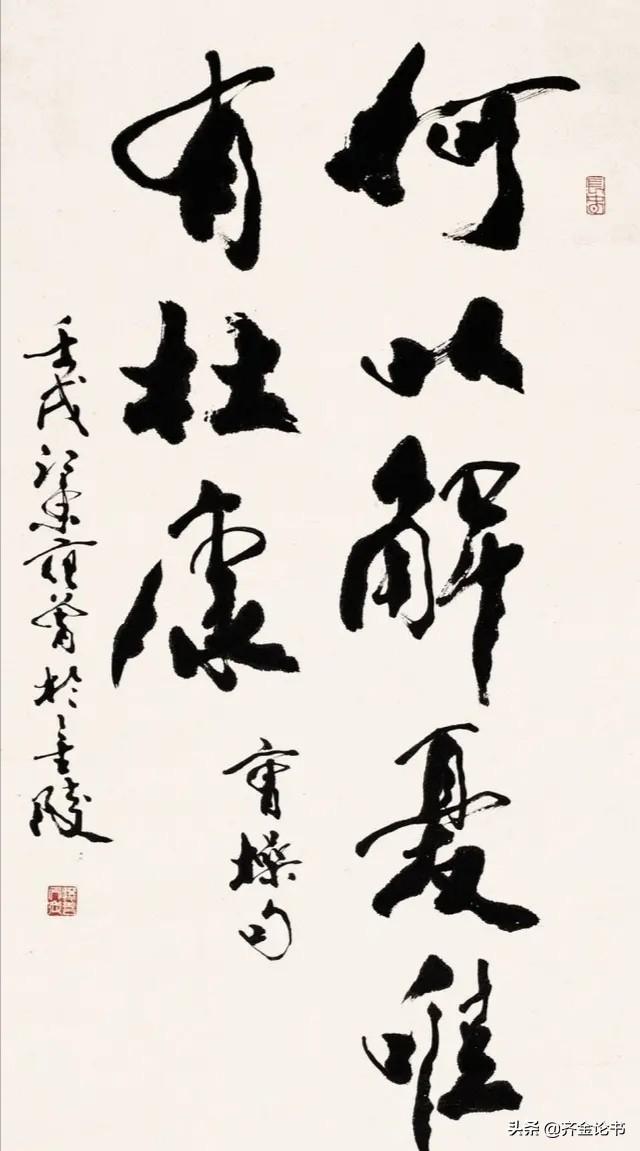 何以解憂唯
有杜康
曹操句
壬戌江東范曾於金陵
头条 @齐金论书